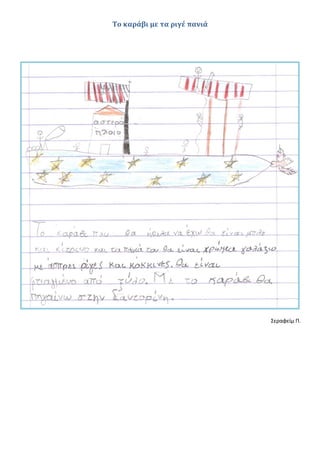 Το καράβι με τα ριγέ πανιά
αστερο
πλοιο
Το καράβι που θα ήθελα να έχω θα είναι μπλε
και κίτρινο και τα πανιά του θα είναι χρώμα γαλάζιο
με άσπρες ρίγες και κόκκινες. Θα είναι
φτιαγμένο από ξύλο. Με το καράβι θα
πηγαίνω στην Σαντορίνη.
Σεραφείμ Π.